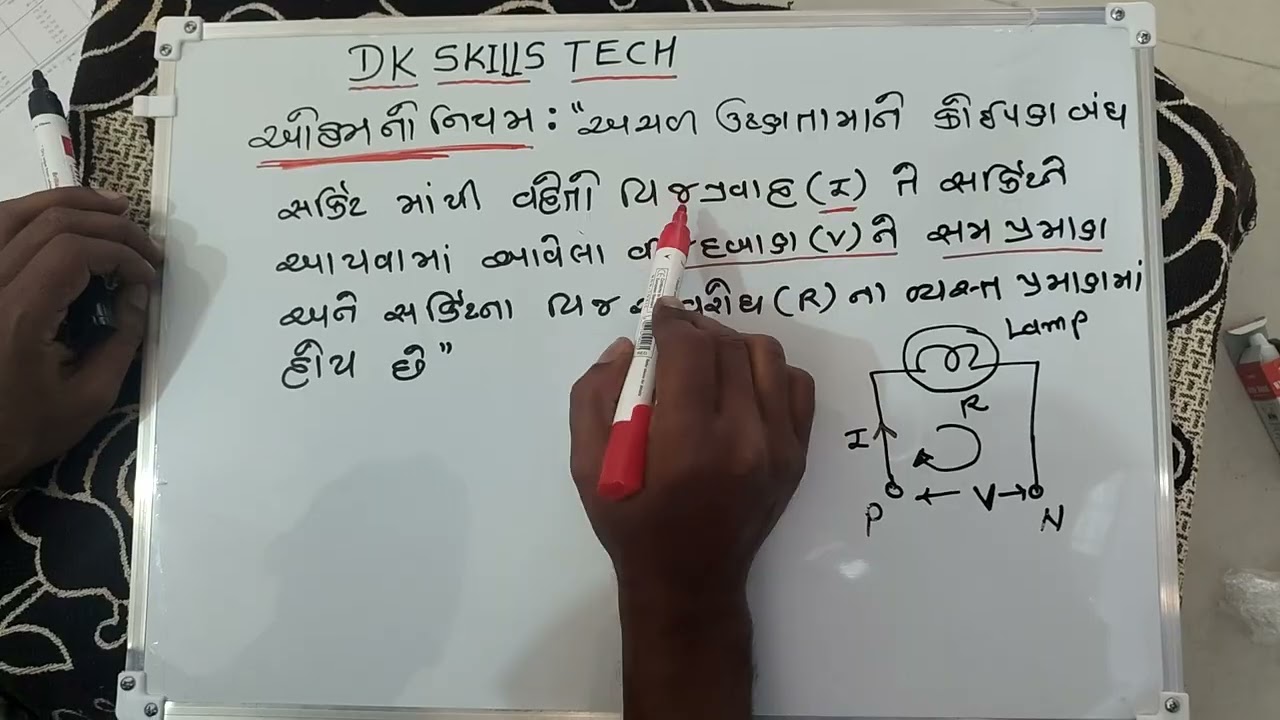 DK SKILLS TECH
ઓહમ નો નિયમ : "અચળ ઉષ્ણતામાને કોઈપણ બંધ
સર્કિટ માંથી વહેતો વિજપ્રવાહ (I) તે સર્કિટને
આપવામાં આવેલા દબાણ (V) ને સમ પ્રમાણ
અને સર્કિટના વિજ (R) ના વ્યસ્ત પ્રમાણમાં
હોય છે"
Lamp
R
I
V
P
N